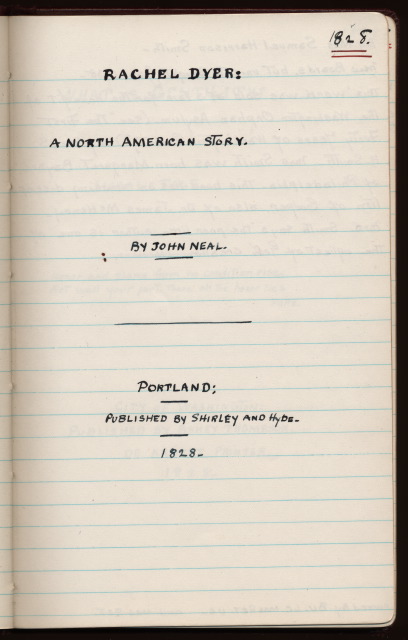 1828.
RACHEL DYER:
A NORTH AMERICAN STORY.
BY JOHN NEAL.
PORTLAND:
PUBLISHED BY SHIRLEY AND HYDE-
1828-